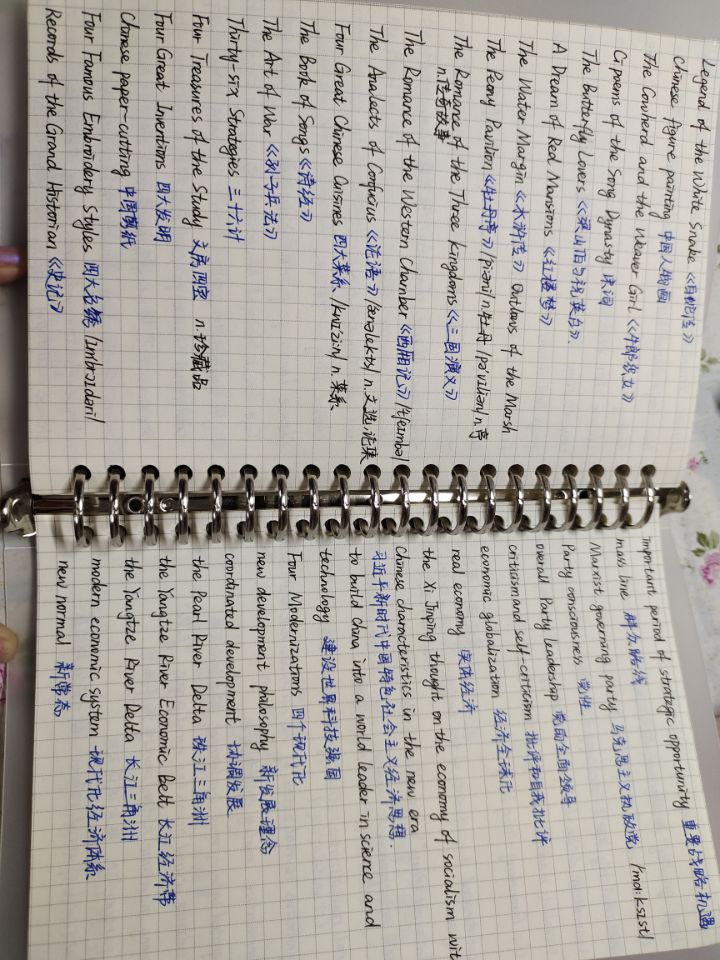 Legend of the White Snake 《白蛇传》
Chinese figure painting 中国人物画
The Cowherd and the Weaver Girl 《牛郎织女》
Ci poems of the Song Dynasty 宋词
The Butterfly Lovers 《梁山伯与祝英台》.
A Dream of Red Mansions 《红楼梦》
The Water Margin 《水浒传》 Outlaws of the Marsh
The Peony Pavilion 《牡丹亭》 /piəni/ n.牡丹 /pəvɪliən/ n.亭
The Romance of the Three Kingdoms 《三国演义》
n.传奇故事
The Romance of the Western Chamber 《西厢记》 /tʃeɪmbə/
The Analects of Confucius 《论语》 /ænəlekts/ n.文选,论集
Four Great Chinese Cuisines 四大菜系 /kwɪziːn/ n.菜系
The Book of Songs 《诗经》
The Art of War 《孙子兵法》
Thirty-six Strategies 三十六计
Four Treasures of the Study 文房四宝 n.珍藏品
Four Great Inventions 四大发明
Chinese paper-cutting 中国剪纸
Four Famous Embroidery Styles 四大名绣 /ɪmbrɔɪdəri/
Records of the Grand Historian 《史记》
important period of strategic opportunity 重要战略机遇
mass line 群众路线
Marxist governing party 马克思主义执政党 /mɑːksɪst/
Party consciousness 党性
overall Party leadership 党的全面领导
criticism and self-criticism 批评和自我批评
economic globalization 经济全球化
real economy 实体经济
the Xi Jinping thought on the economy of socialism wit
Chinese characteristics in the new era
习近平新时代中国特色社会主义经济思想.
to build China into a world leader in science and
technology 建设世界科技强国
Four Modernizations 四个现代化
new development philosophy 新发展理念
coordinated development 协调发展
the Pearl River Delta 珠江三角洲
the Yangtze River Economic Belt 长江经济带
the Yangtze River Delta 长江三角洲
modern economic system 现代化经济体系
new normal 新常态